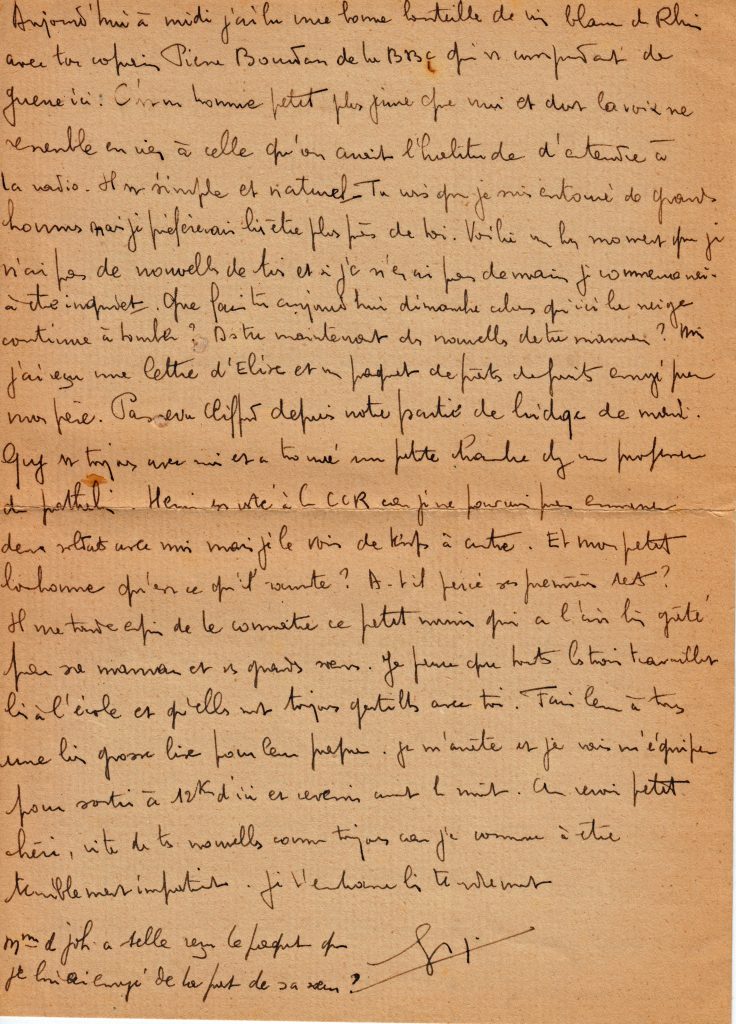 Aujourd'hui à midi j'ai bu une bonne bouteille de vin blanc du Rhin
avec ton copain Pierre Bourdan de la BBC qui est correspondant de
guerre ici. C'est un homme petit plus jeune que moi et dont la voix ne
ressemble en rien à celle qu'on avait l'habitude d'entendre à
la radio. Il est simple et naturel. Tu vois que je suis entouré de grands
hommes mais je préférerais bien être plus près de toi. Voilà un bon moment que je
n'ai pas de nouvelles de toi et si je n'en ai pas demain je commencerai
à être inquiet. Que fais tu aujourd'hui dimanche alors qu'ici la neige
continue à tomber ? As tu maintenant des nouvelles de ta maman ? Moi
j'ai reçu une lettre d'Elise et un paquet de pâtes de fruits envoyé par
mon père. Pas revu Clifford depuis notre partie de bridge de mardi.
Guy est toujours avec moi et a trouvé une petite chambre chez un professeur
du patelin. Henri est resté à la CCR car je ne pouvais pas emmener
deux soldats avec moi mais je le vois de temps à autre. Et mon petit
bonhomme qu'est ce qu'il raconte ? A-t-il percé ses premières dents ?
Il me tarde enfin de le connaître ce petit mimi qui a l'air bien gâté
par sa maman et ses grandes sœurs. Je pense que toutes les trois travaillent
bien à l'école et qu'elles sont toujours gentilles avec toi. Fais leur à tous
une bien grosse bise pour leur papa. Je m'arrête et je vais m'équiper
pour sortir à 12k d'ici et revenir avant la nuit. Au revoir petit
chéri, vite de tes nouvelles comme toujours car je commence à être
terriblement impatient. Je t'embrasse bien tendrement
Mme de a telle reçu le paquet que
je lui ai envoyé de la part de sa sœur ?